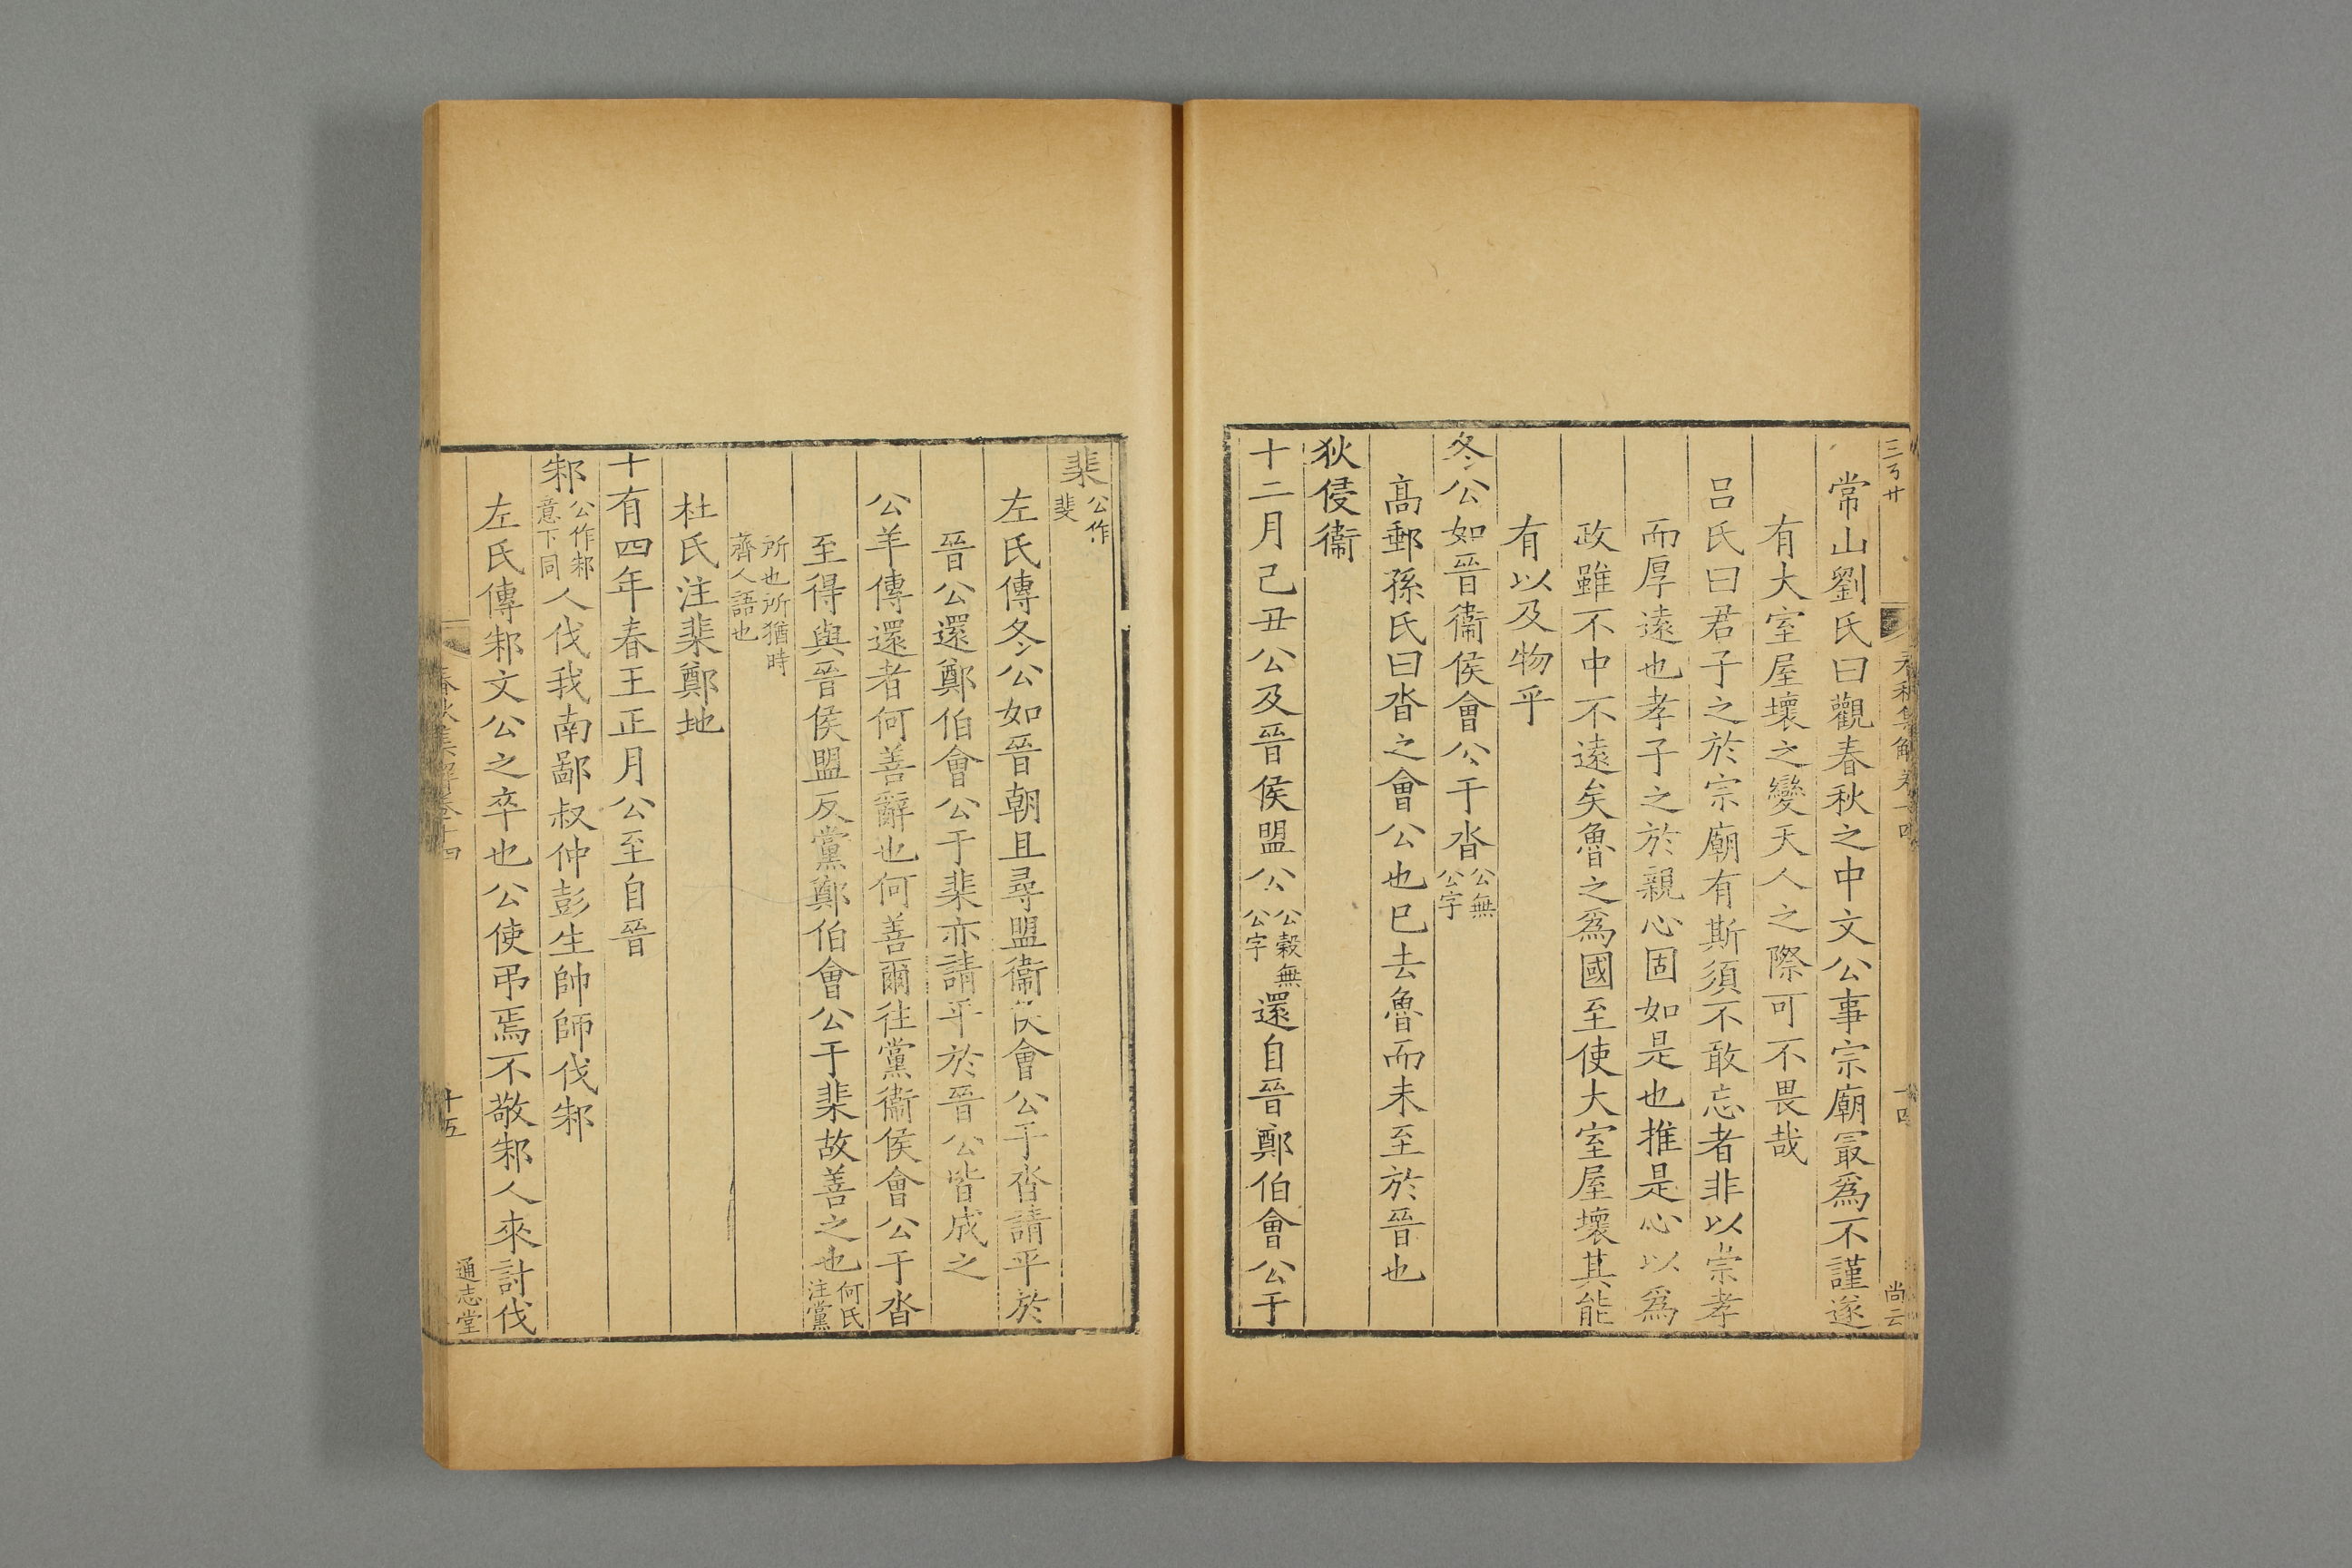 常山劉氏曰觀春秋之中文公事宗廟冣爲不謹遂
有大室屋壞之變天人之際可不畏哉
呂氏曰君子之於宗廟有斯須不敢忘者非以崇孝
而厚遠也孝子之於親心固如是也推是心以爲
政雖不中不遠矣魯之爲國至使大室屋壞其能
有以及物乎
冬公如晉衞侯會公于沓公無公字
高郵孫氏曰沓之會公也巳去魯而未至於晉也
狄侵衞
十二月己丑公及晉侯盟公公穀無公字還自晉鄭伯會公于
尚云
棐公作斐
左氏傳冬公如晉朝且尋盟衞侯會公于沓請平於
晉公還鄭伯會公于棐亦請平於晉公皆成之
公羊傳還者何善辭也何善爾往黨衞侯會公于沓
至得與晉侯盟反黨鄭伯會公于棐故善之也何氏注黨
所也所猶時齊人語也
杜氏注棐鄭地
十有四年春王正月公至自晉
邾公作邾意下同人伐我南鄙叔仲彭生帥師伐邾
左氏傳邾文公之卒也公使弔焉不敬邾人來討伐
春秋集解卷十四
十五
通志堂